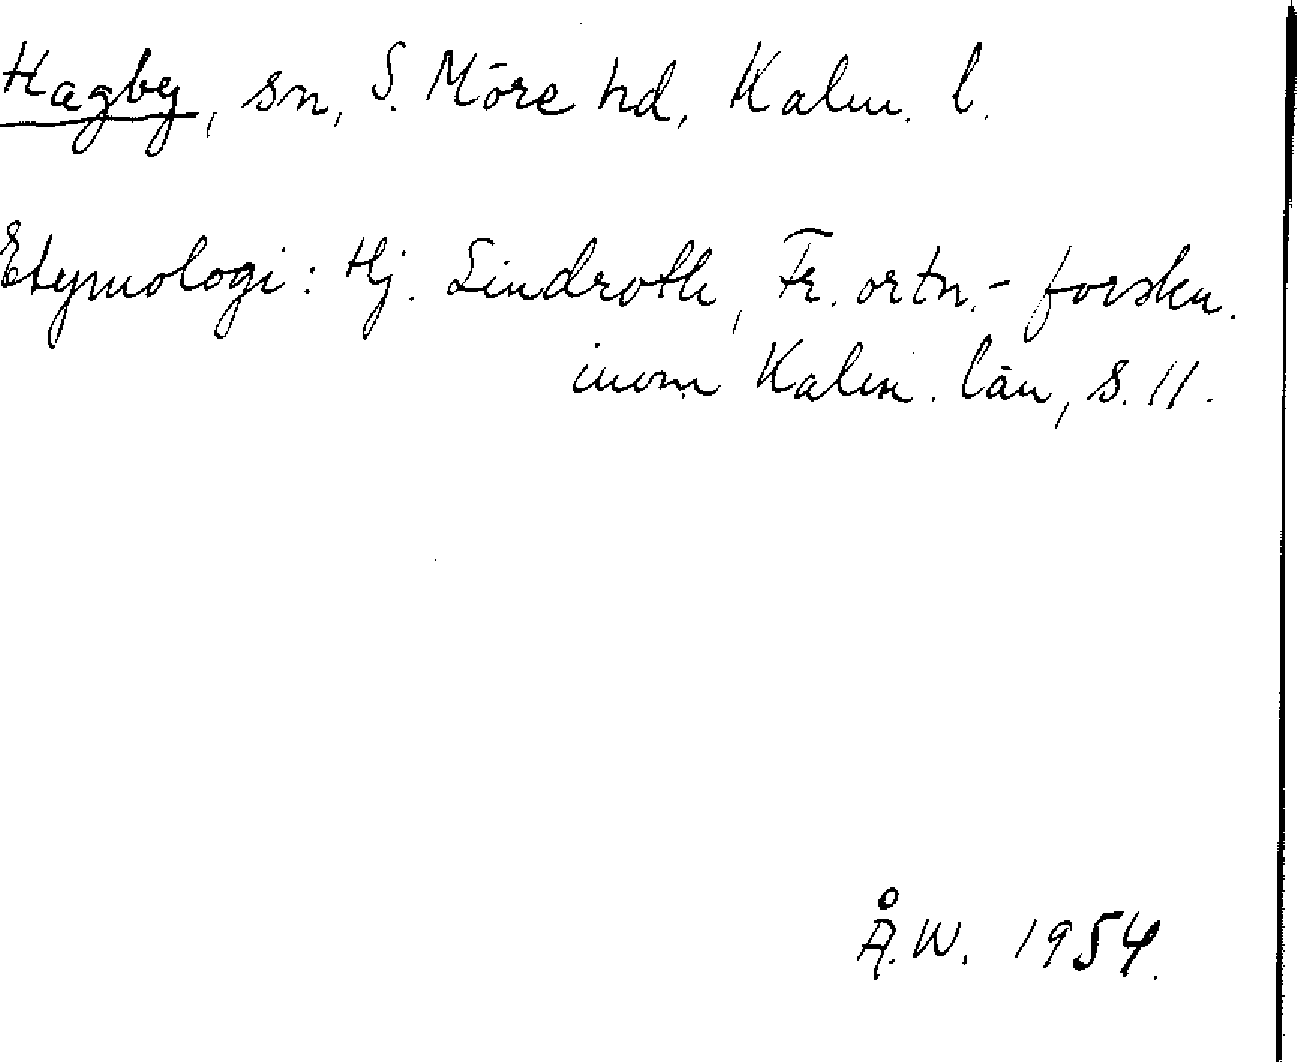 Hagby, sn, S. Möre hd, Kalm. l.
Etymologi: Hj. Lindroth, Fr. ortn.-forskn.
inom Kalm. län, s. 11.
Å.W. 1954.